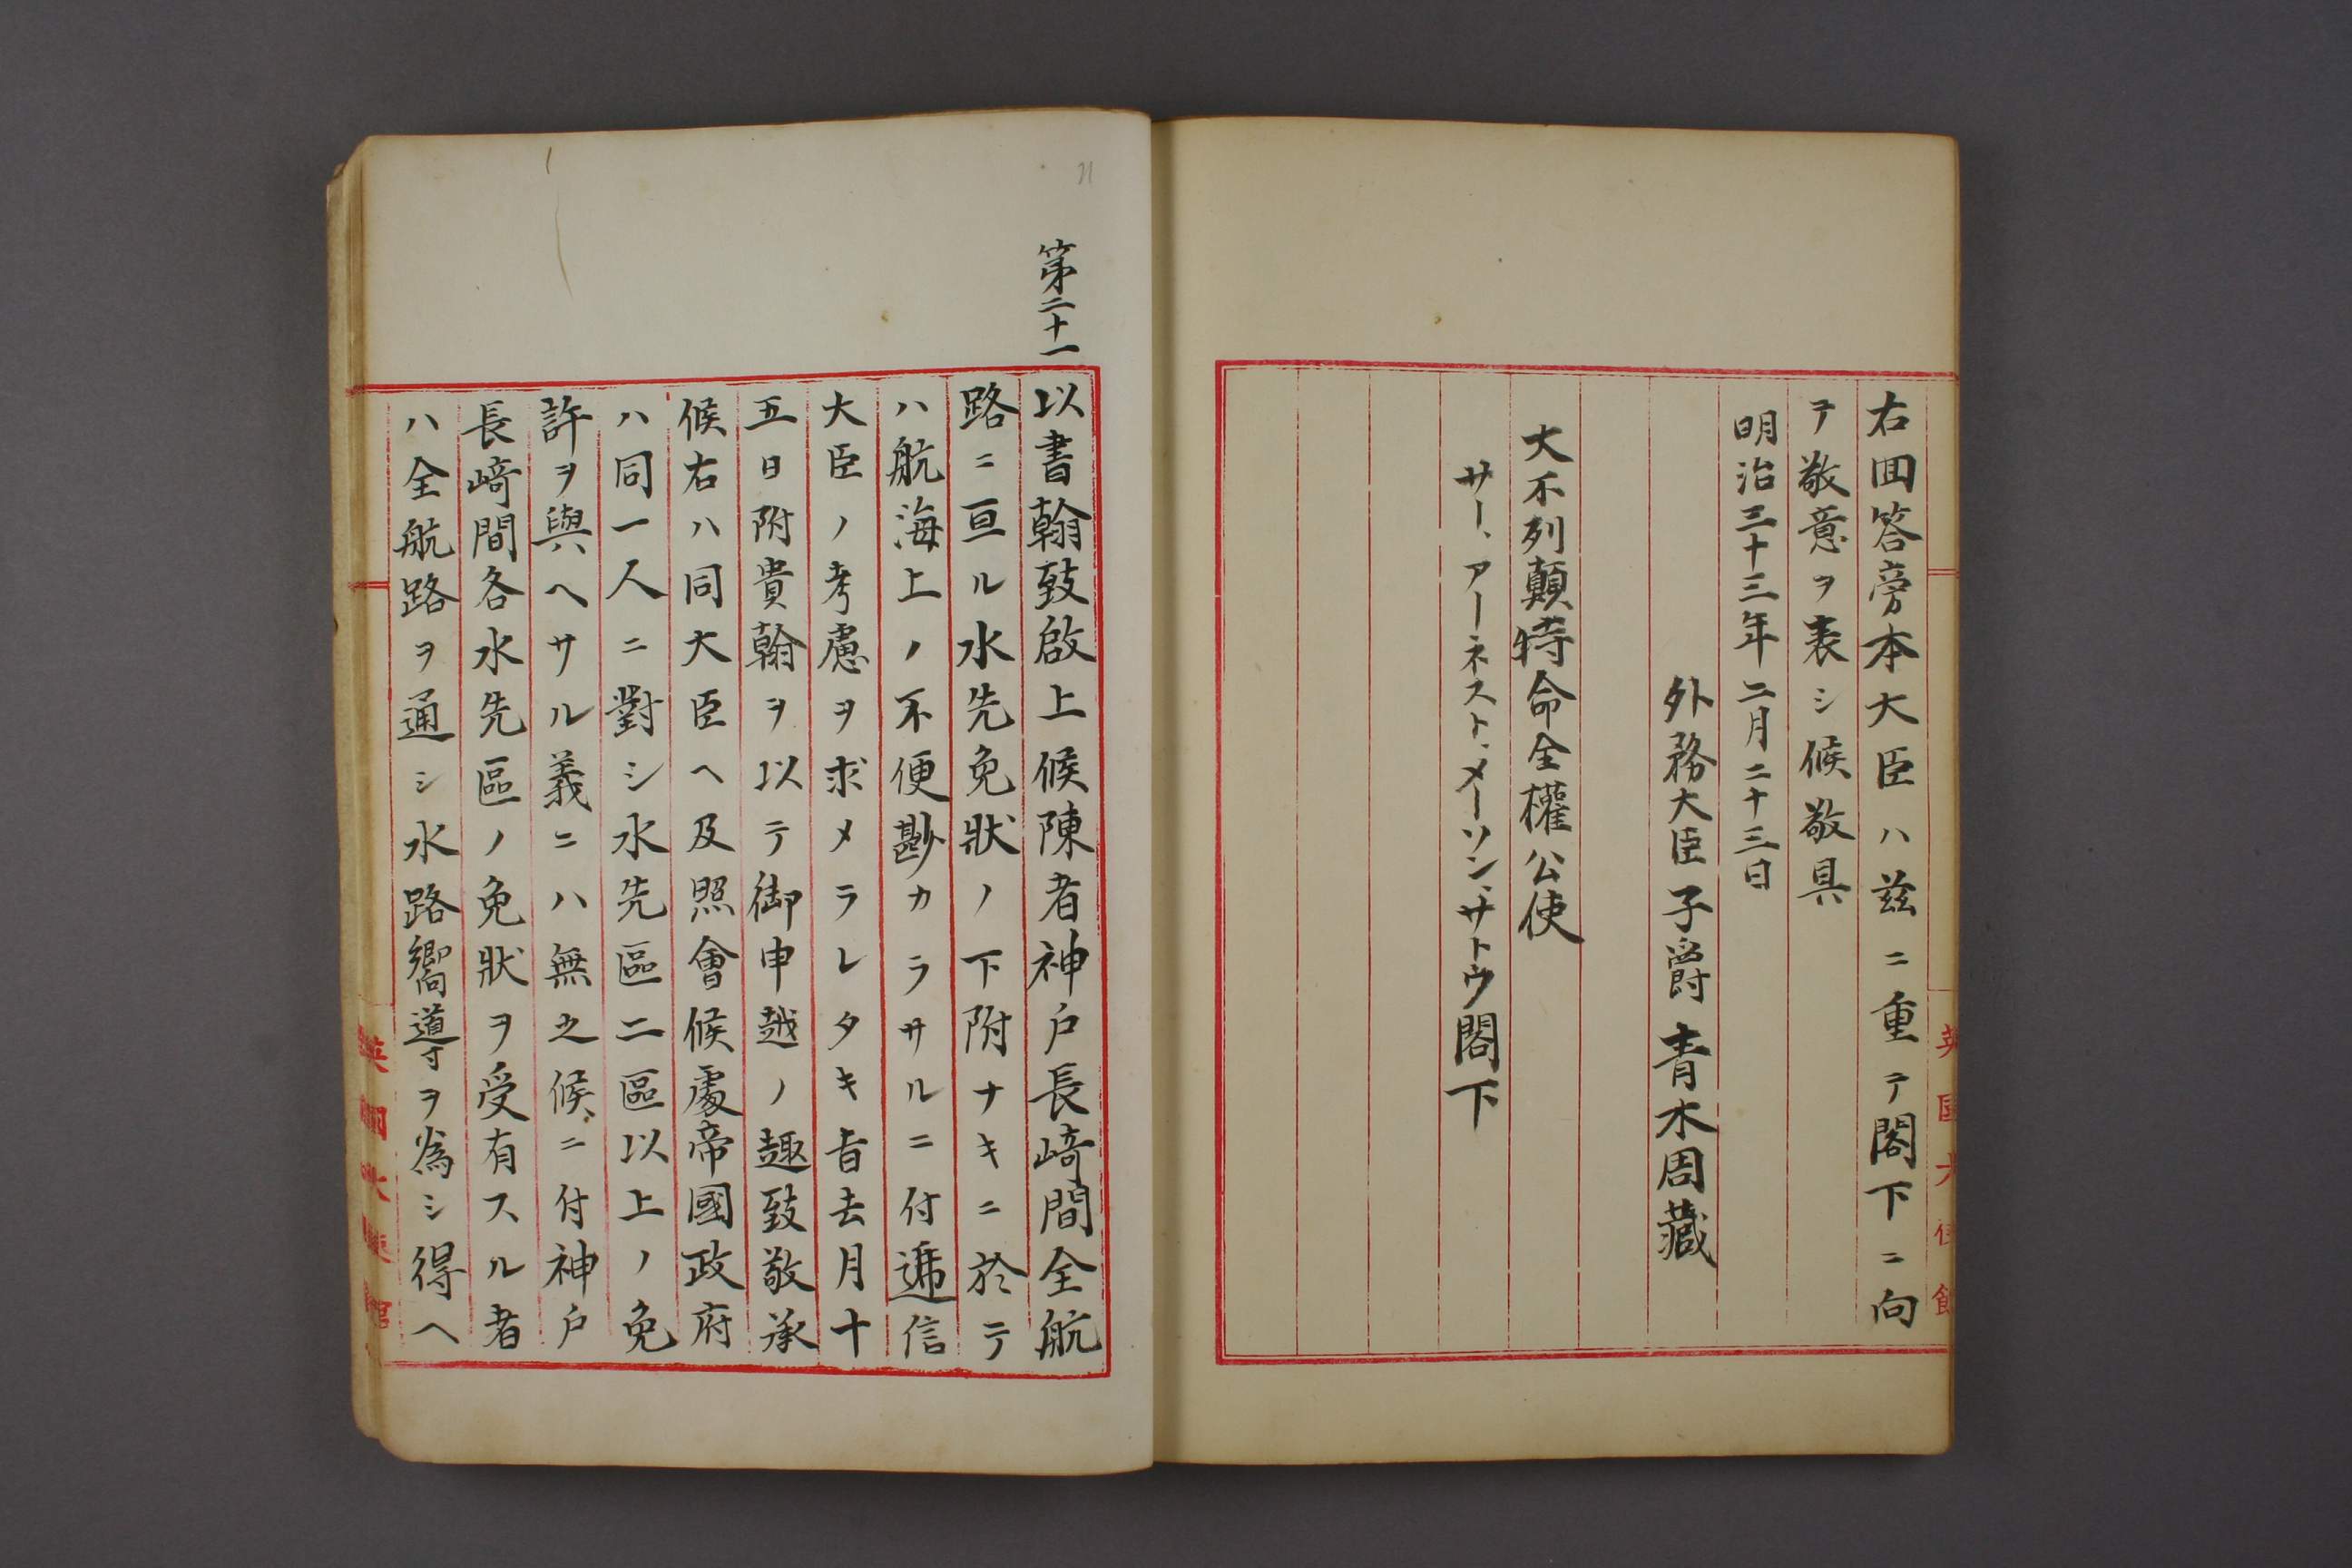 右回答旁本大臣ハ茲ニ重テ閣下ニ向
テ敬意ヲ表シ候敬具
明治三十三年二月二十三日
外務大臣子爵青木周藏
大不列顛特命全權公使
サー、アーネスト、メーソン、サトウ閣下
英國大使館
21
第二十一
以書翰致啟上候陳者神戶長﨑間全航
路ニ亘ル水先免狀ノ下附ナキニ於テ
ハ航海上ノ不便尠カラサルニ付遞信
大臣ノ考慮ヲ求メラレタキ旨去月十
五日附貴翰ヲ以テ御申越ノ趣致敬承
候右ハ同大臣ヘ及照會候處帝國政府
ハ同一人ニ對シ水先區二區以上ノ免
許ヲ與ヘサル義ニハ無之候ニ付神戶
長﨑間各水先區ノ免狀ヲ受有スル者
ハ全航路ヲ通シ水路嚮導ヲ為シ得ヘ
英國大使館